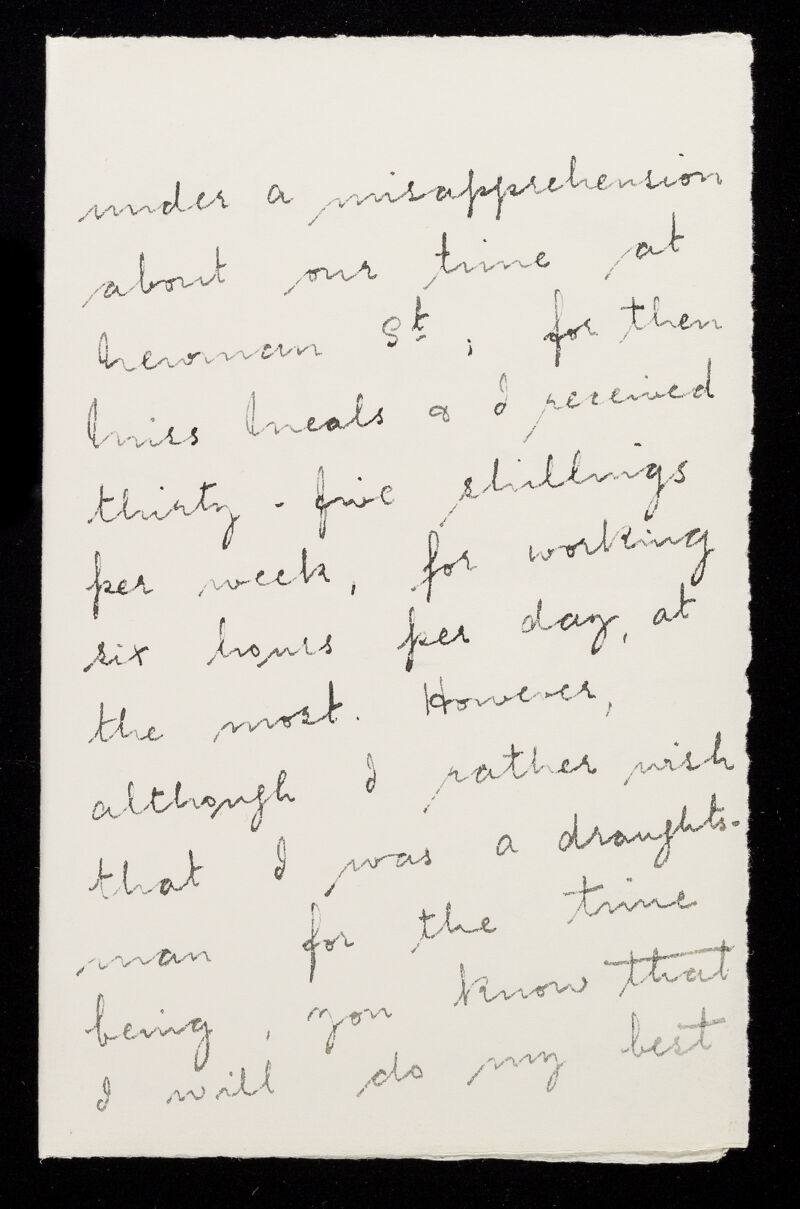 under a misapprehension
about our time at
Newman St; for then
Miss Meals & I received
thirty-five shillings
per week, for working
six hours per day, at
the most. However,
although I rather wish
that I was a draughts-
man for the time
being, you know that
I will do my best